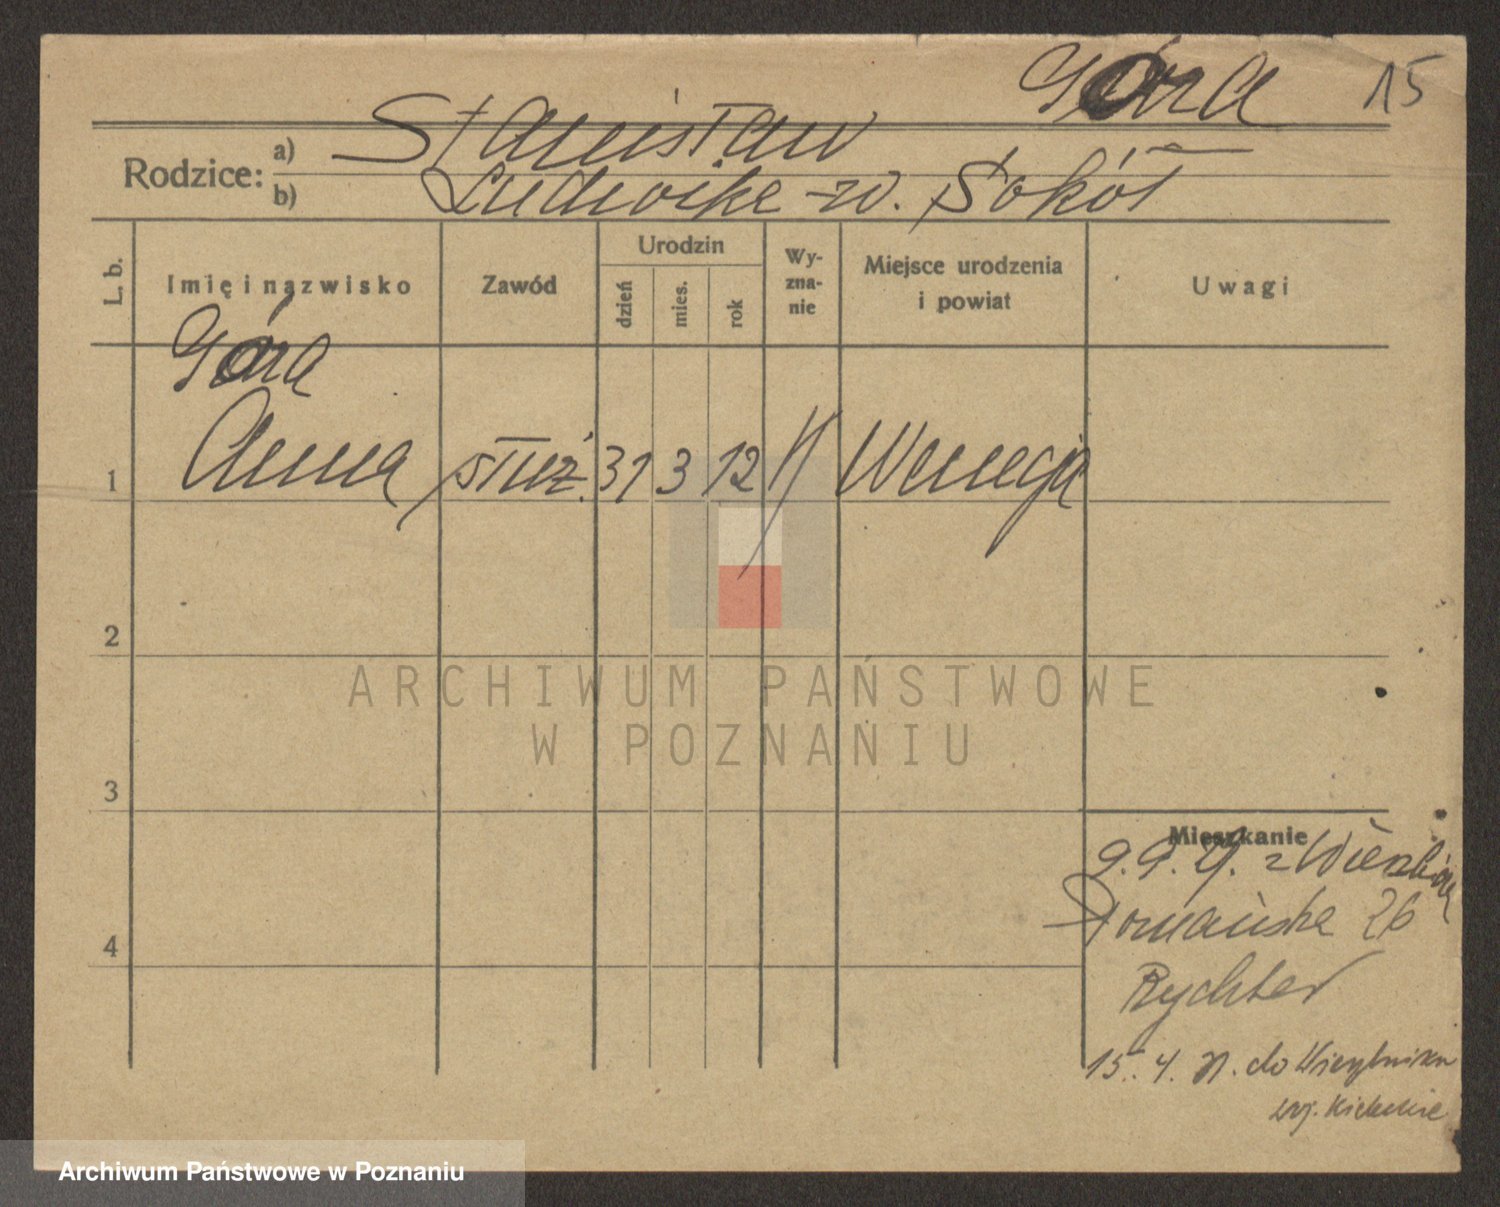 Góra 15
Rodzice: a) Stanisław
b) Ludwika z d. Sokół
L. b. Imię i nazwisko Zawód Urodzin dzień mies. rok Wyznanie Miejsce urodzenia i powiat Uwagi
Góra
1 Anna służ. 31 3 12 Wenecja
2
ARCHIWUM PAŃSTWOWE
W POZNANIU
3
Mieszkanie
9.9. z
26
4
Rychter
15. 4. do
woj. Kieleckie
Archiwum Państwowe w Poznaniu